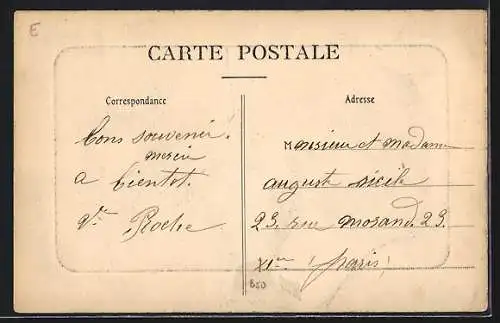 E
CARTE POSTALE
Correspondance
Adresse
bons souvenir!
merci
a bientot.
Vve Roche
Monsieur et madame
auguste sicile
23. rue morand. 23.
XIme paris!
B50